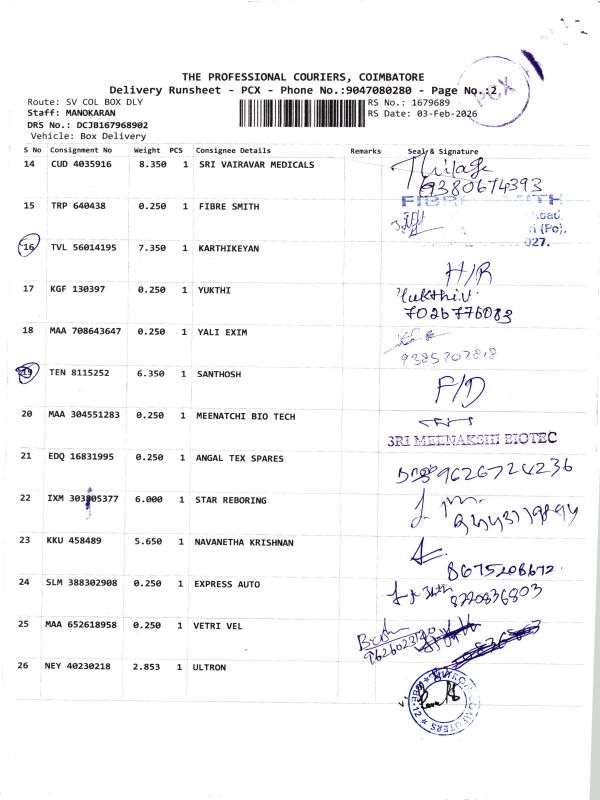 THE PROFESSIONAL COURIERS, COIMBATORE
Delivery Runsheet - PCX - Phone No.:9047080280 - Page No.:2
PCX
Route: SV COL BOX DLY
RS No.: 1679689
Staff: MANOKARAN
RS Date: 03-Feb-2026
DRS No.: DCJB167968902
Vehicle: Box Delivery
S No Consignment No Weight PCS Consignee Details Remarks Seal & Signature
14 CUD 4035916 8.350 1 SRI VAIRAVAR MEDICALS
9380674393
15 TRP 640438 0.250 1 FIBRE SMITH
16 TVL 56014195 7.350 1 KARTHIKEYAN
027.
H/R
17 KGF 130397 0.250 1 YUKTHI
Yukthi.V.
7026776083
18 MAA 708643647 0.250 1 YALI EXIM
9385707818
19 TEN 8115252 6.350 1 SANTHOSH
F/D
20 MAA 304551283 0.250 1 MEENATCHI BIO TECH
SRI MEENAKSHI BIOTEC
21 EDQ 16831995 0.250 1 ANGAL TEX SPARES
9626724236
22 IXM 303805377 6.000 1 STAR REBORING
23 KKU 458489 5.650 1 NAVANETHA KRISHNAN
8675208672.
24 SLM 388302908 0.250 1 EXPRESS AUTO
8220836803
25 MAA 652618958 0.250 1 VETRI VEL
26 NEY 40230218 2.853 1 ULTRON